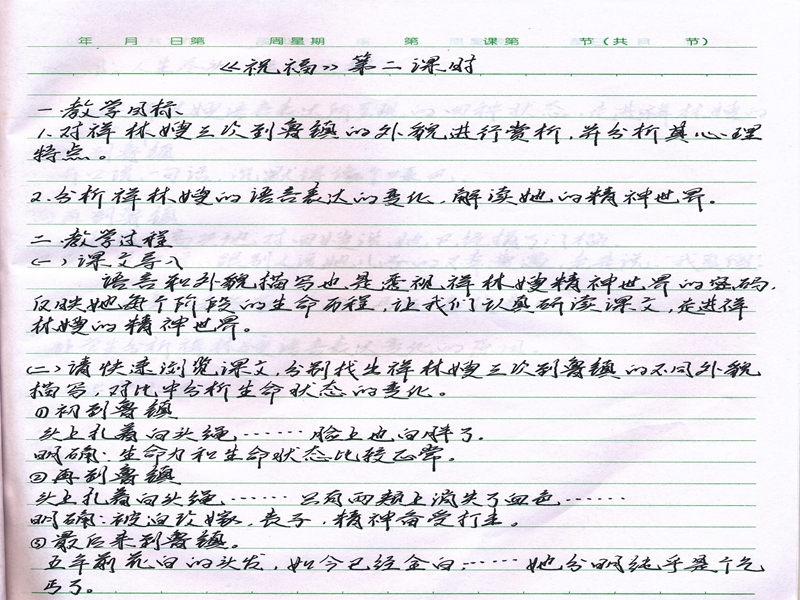 年 月 日第 周星期 第 课第 节(共 节)
《祝福》第二课时
一.教学目标
1.对祥林嫂三次到鲁镇的外貌进行赏析,并分析其心理
特点。
2.分析祥林嫂的语言表达的变化,解读她的精神世界。
二.教学过程
(一)课文导入
语言和外貌描写也是透视祥林嫂精神世界的密码,
反映她每个阶段的生命历程,让我们认真研读课文,走进祥
林嫂的精神世界。
(二)请快速浏览课文,分别找出祥林嫂三次到鲁镇的不同外貌
描写,对比中分析生命状态的变化。
①初到鲁镇
头上扎着白头绳……脸上也白胖了.
明确:生命力和生命状态比较正常。
②再到鲁镇
头上扎着白头绳……只有两颊上消失了血色……
明确:被迫改嫁,丧子,精神备受打击。
③最后来到鲁镇。
五年前花白的头发,如今已经全白:……她分明纯乎是个乞
丐了。